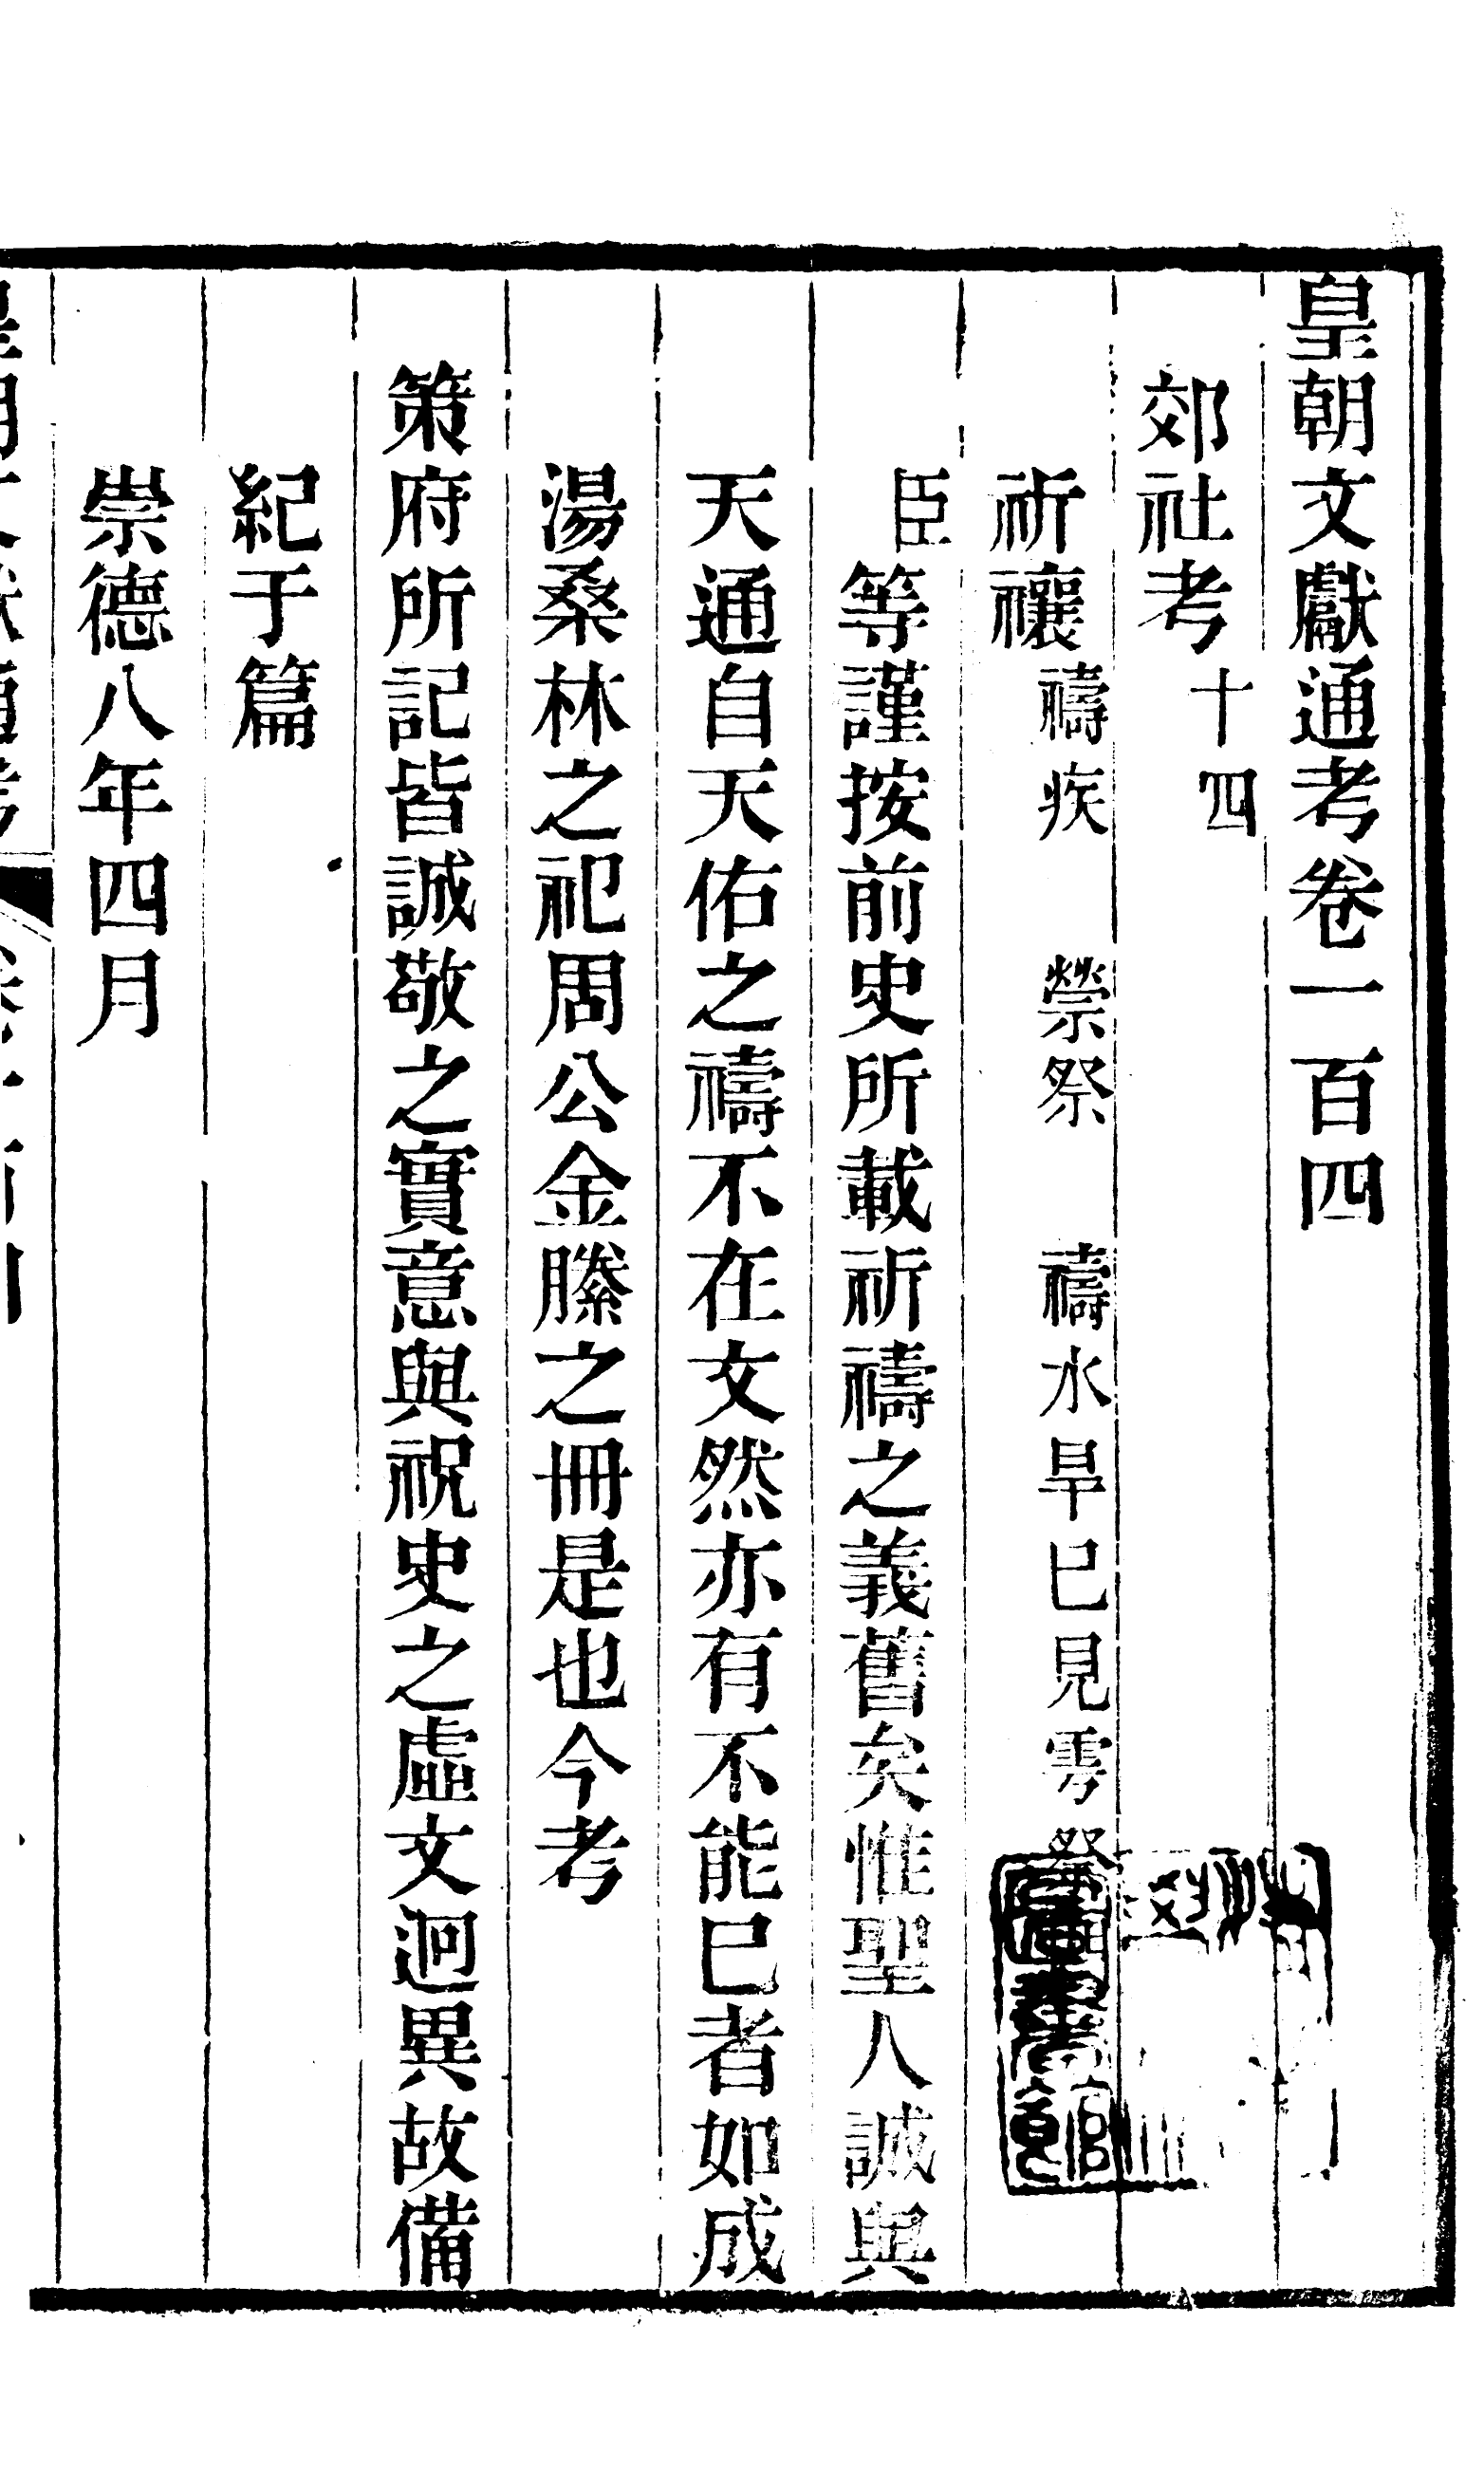 皇朝文獻通考卷一百四
郊社考十四
祈禳禱疾　禜祭　禱水旱已見雩祭
臣等謹按前史所載祈禱之義舊矣惟聖人誠與
天通自天佑之禱不在文然亦有不能已者如成
湯桑林之祀周公金縢之冊是也今考
策府所記皆誠敬之實意與祝史之虛文迥異故備
紀于篇
崇德八年四月